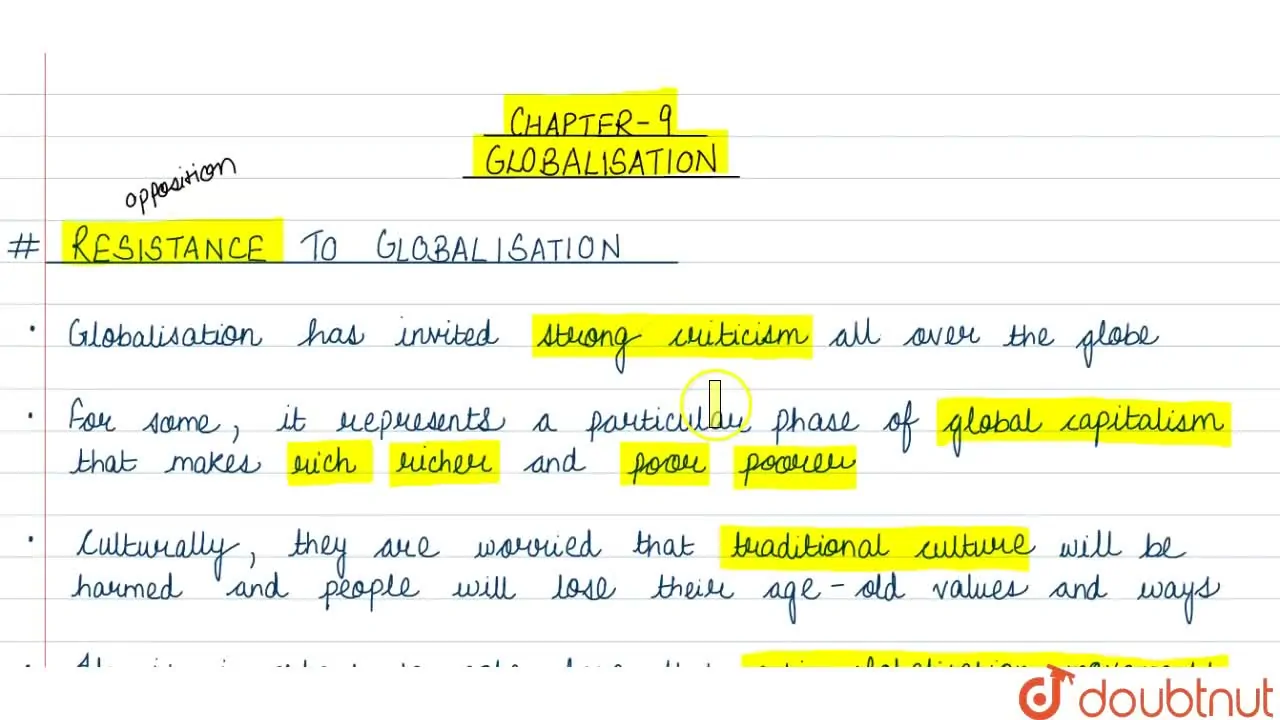 CHAPTER-9
GLOBALISATION
opposition
# RESISTANCE TO GLOBALISATION
· Globalisation has invited strong criticism all over the globe
· For some, it represents a particular phase of global capitalism
that makes rich richer and poor poorer
· Culturally, they are worried that traditional culture will be
harmed and people will lose their age-old values and ways
doubtnut